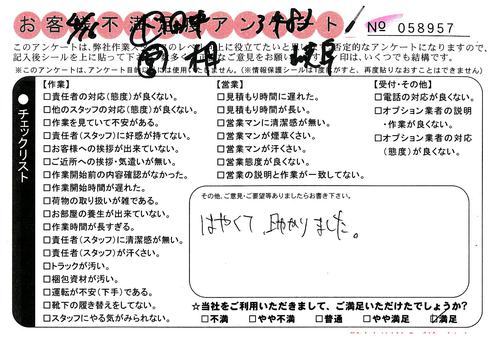 お客様不満足度アンケート
No 058957
このアンケートは、弊社作業
記入後シールを上に貼って下さ
【作業】
□責任者の対応(態度)が良くない。
□他のスタッフの対応(態度)が良くない。
□作業を見ていて不安がある。
□責任者(スタッフ)に好感が持てない。
□お客様への挨拶が出来ていない。
□ご近所への挨拶・気遣いが無い。
□作業開始前の内容確認がなかった。
□作業開始時間が遅れた。
□荷物の取り扱いが雑である。
□お部屋の養生が出来ていない。
□作業時間が長すぎる。
□責任者(スタッフ)に清潔感が無い。
□責任者(スタッフ)が汗くさい。
□トラックが汚い。
□梱包資材が汚い。
□運転が不安(下手)である。
□靴下の履き替えをしてない。
□スタッフにやる気がみられない。
【営業】
□見積もり時間に遅れた。
□見積もり時間が長い。
□営業マンに清潔感が無い。
□営業マンが煙草くさい。
□営業マンが汗くさい。
□営業態度が良くない。
□営業の説明と作業が一致してない。
【受付・その他】
□電話の対応が良くない。
□オプション業者の説明
・作業が良くない。
□オプション業者の対応
(態度)が良くない。
●チェックリスト
その他、ご意見・ご要望等ありましたらお書き下さい。
はやくて 助かりました。
☆当社をご利用いただきまして、ご満足いただけたでしょうか?
□不満 □やや不満 □普通 □やや満足 □満足